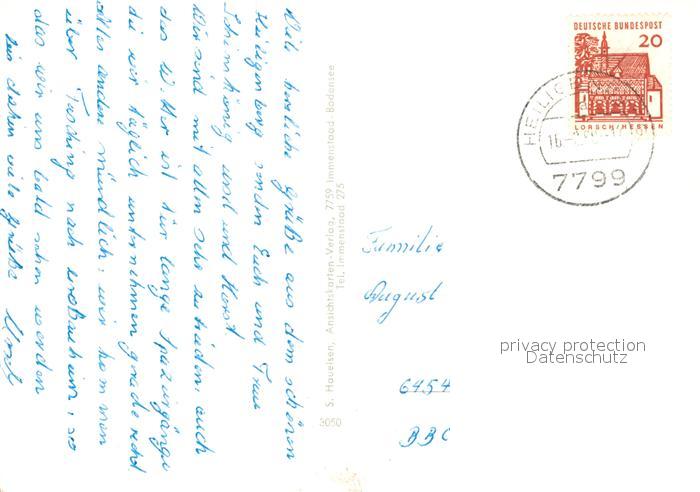 Viele herzliche Grüße aus dem schönen
Heiligenberg senden Euch und Frau
und Horst
Wir sind mit allem sehr zufrieden, auch
das Wetter ist für lange Spaziergänge
die wir täglich unternehmen gerade recht.
Alles andere mündlich, wir kommen
über Fasching nach so
das wir uns bald sehen werden
Bis dahin viele Grüße
S. Hauelsen, Ansichtskarten-Verlag, 7759 Immenstaad-Bodensee
Tel. Immenstaad 275
3050
DEUTSCHE BUNDESPOST
20
LORSCH/HESSEN
7799
Familie
August
6454
privacy protection
Datenschutz